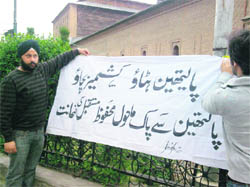 پالیتھین ہٹاؤ کشمیر بچاؤ
پالیتھین سے پاک ماحول محفوظ مستقبل کی ضمانت